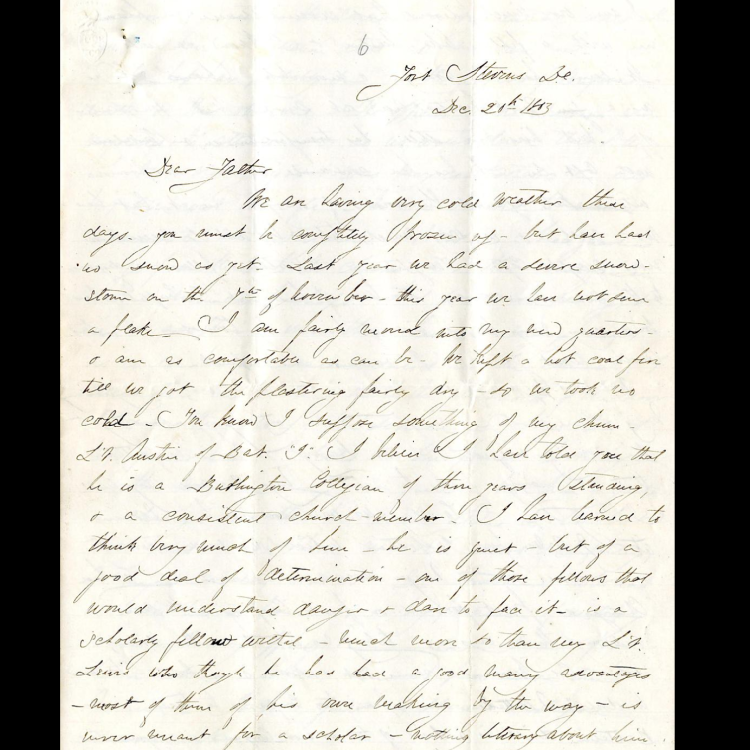 6
Fort Stevens D.C.
Dec. 20th 1863
Dear Father
We are having very cold weather these
days. you must be completely frozen up - but have had
no snow as yet. Last year we had a severe snow-
storm on the 7th of November - this year we have not seen
a flake - I am fairly moved into my new quarters -
& am as comfortable as can be - We kept a hot coal fire
till we got the plastering fairly dry - so we took no
cold - You know I suppose something of my chum -
Lt. Austin of Bat. "I". I believe I have told you that
he is a Burlington Collegian of three years standing,
& a consistent church-member. I have learned to
think very much of him - he is quiet - but of a
good deal of determination - one of those fellows that
would understand danger & dare to face it - is a
scholarly fellow withal - much more so than my Lt.
Lewis who though he has had a good many advantages
- most of them of his own making by the way - is
never meant for a scholar - nothing literary about him.